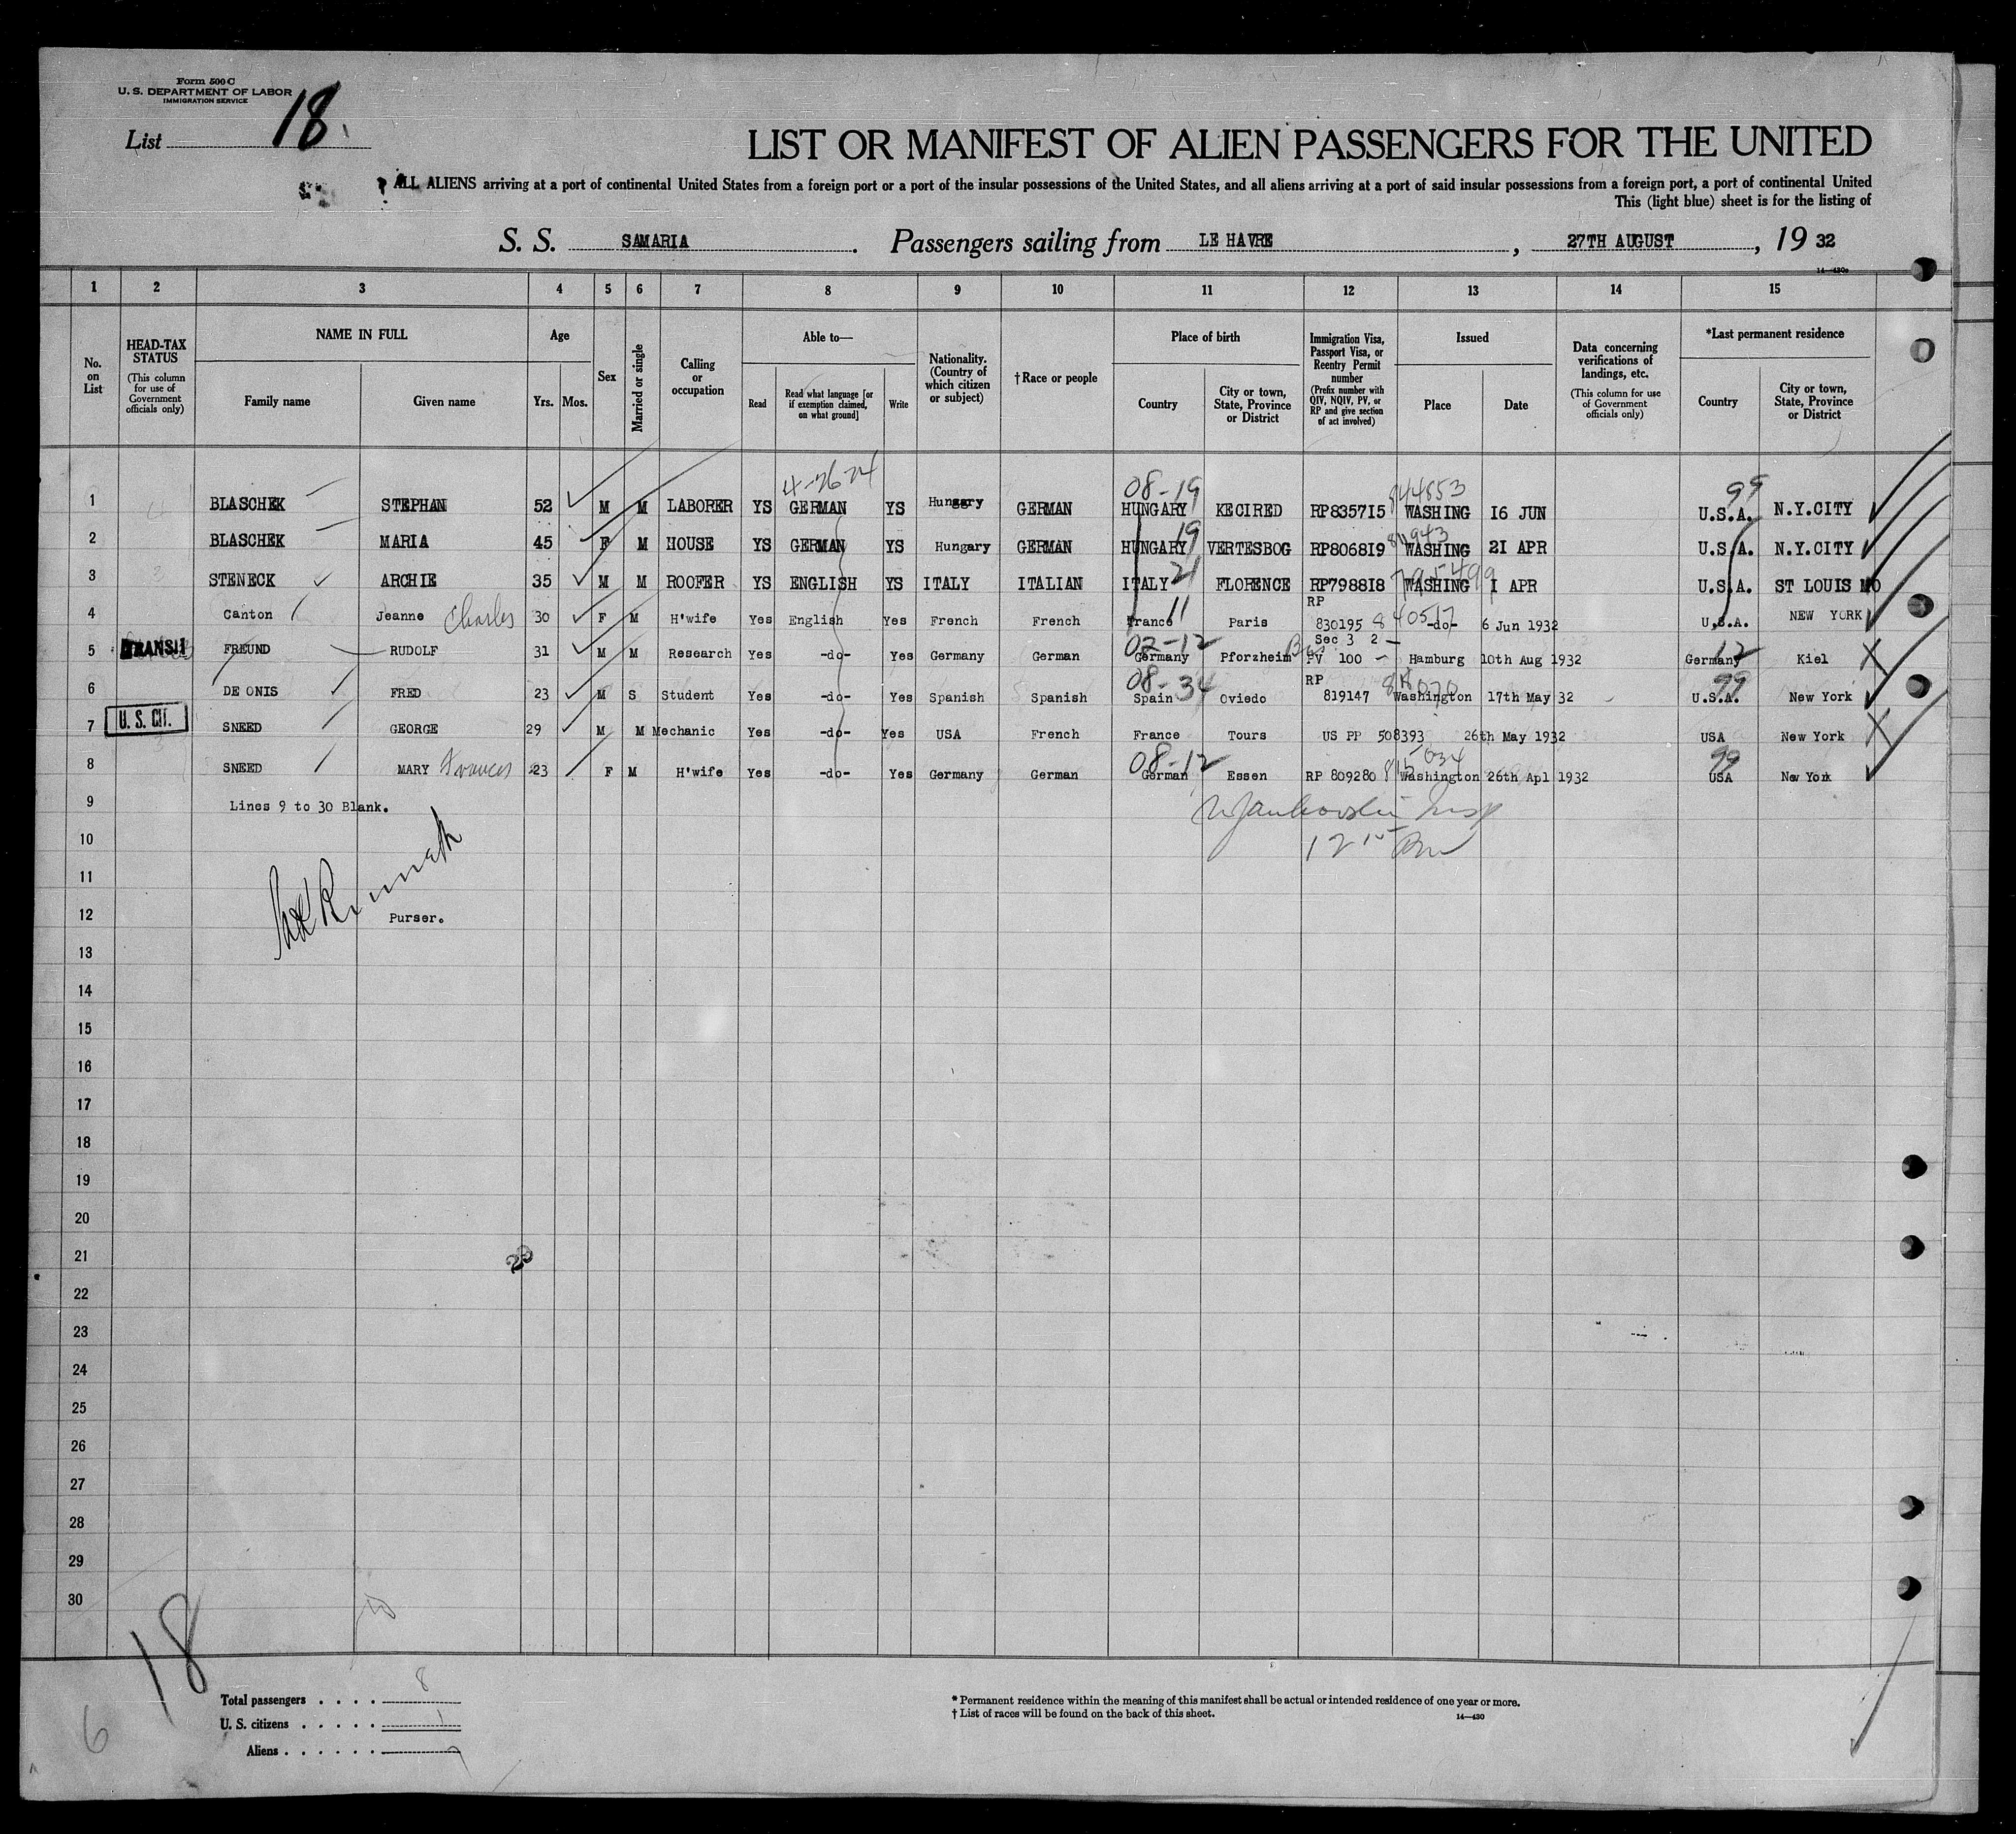 Form 500 C
U. S. DEPARTMENT OF LABOR
IMMIGRATION SERVICE
List 18
LIST OR MANIFEST OF ALIEN PASSENGERS FOR THE UNITED
ALL ALIENS arriving at a port of continental United States from a foreign port or a port of the insular possessions of the United States, and all aliens arriving at a port of said insular possessions from a foreign port, a port of continental United
This (light blue) sheet is for the listing of
S. S. SAMARIA. Passengers sailing from LE HAVRE, 27TH AUGUST, 19 32
14-430a
1 2 3 4 5 6 7 8 9 10 11 12 13 14 15
No. on List
HEAD-TAX STATUS (This column for use of Government officials only)
NAME IN FULL Family name Given name
Age Yrs. Mos.
Sex
Married or single
Calling or occupation
Able to— Read Read what language [or if exemption claimed, on what ground] Write
Nationality. (Country of which citizen or subject)
†Race or people
Place of birth Country City or town, State, Province or District
Immigration Visa, Passport Visa, or Reentry Permit number (Prefix number with QIV, NQIV, PV, or RP and give section of act involved)
Issued Place Date
Data concerning verifications of landings, etc. (This column for use of Government officials only)
*Last permanent residence Country City or town, State, Province or District
4-26-24 08-19 844853 99
1 BLASCHEK STEPHAN 52 M M LABORER YS GERMAN YS Hungary GERMAN HUNGARY KECIRED RP835715 WASHING 16 JUN U.S.A. N.Y.CITY
2 BLASCHEK MARIA 45 F M HOUSE YS GERMAN YS Hungary GERMAN HUNGARY 19 VERTESBOG RP806819 WASHING 21 APR U.S.A. N.Y.CITY
3 STENECK ARCHIE 35 M M ROOFER YS ENGLISH YS ITALY ITALIAN ITALY 21 FLORENCE RP798818 WASHING 1 APR U.S.A. ST LOUIS MO
4 Canton Jeanne Charles 30 F M H'wife Yes English Yes French French France 11 Paris RP 830195 840517 -do- 6 Jun 1932 U.S.A. NEW YORK
5 TRANSIT FREUND RUDOLF 31 M M Research Yes -do- Yes Germany German 02-12 Germany Pforzheim Sec 3 2 PV 100 Hamburg 10th Aug 1932 12 Germany Kiel
6 DE ONIS FRED 23 M S Student Yes -do- Yes Spanish Spanish 08-34 Spain Oviedo RP 819147 Washington 17th May 32 99 U.S.A. New York
7 U. S. CIT. SNEED GEORGE 29 M M Mechanic Yes -do- Yes USA French France Tours US PP 508393 26th May 1932 USA New York
8 SNEED MARY Frances 23 F M H'wife Yes -do- Yes Germany German 08-12 German Essen RP 809280 815034 Washington 26th Apl 1932 99 USA New York
9 Lines 9 to 30 Blank.
10
11
12 Purser.
13
14
15
16
17
18
19
20
21
22
23
24
25
26
27
28
29
30
18
6
Total passengers . . . . 8
U. S. citizens . . . . . 1
Aliens . . . . . . 7
* Permanent residence within the meaning of this manifest shall be actual or intended residence of one year or more.
† List of races will be found on the back of this sheet.
14—430